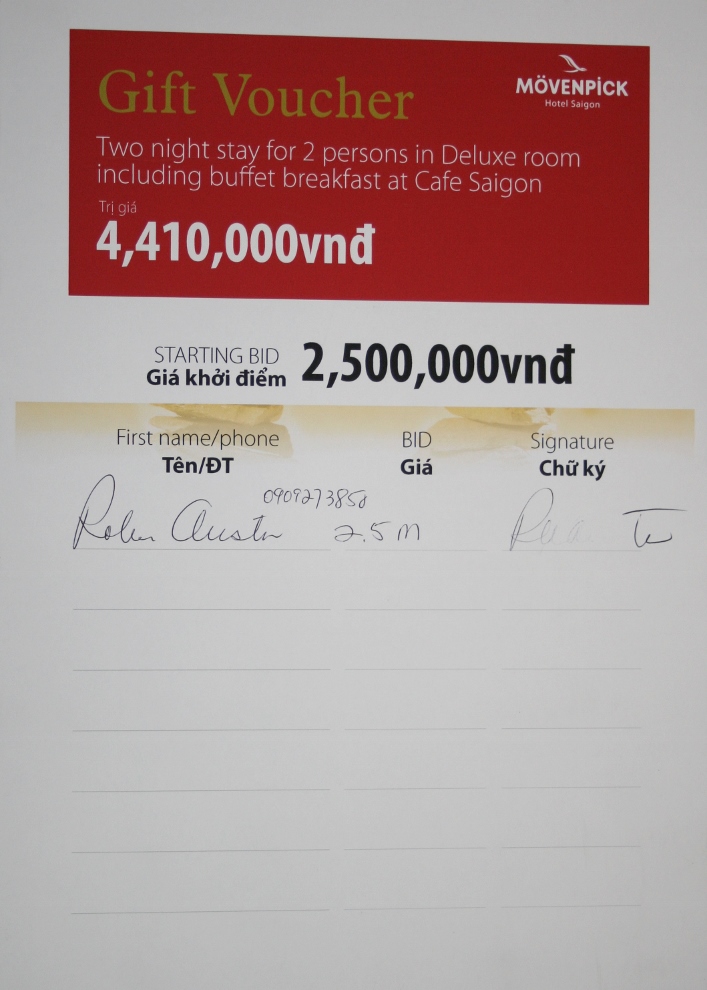 Gift Voucher
MÖVENPICK
Hotel Saigon
Two night stay for 2 persons in Deluxe room
including buffet breakfast at Cafe Saigon
Trị giá
4,410,000vnđ
STARTING BID 2,500,000vnđ
Giá khởi điểm
First name/phone BID Signature
Tên/ĐT Giá Chữ ký
0909273850
2.5 M